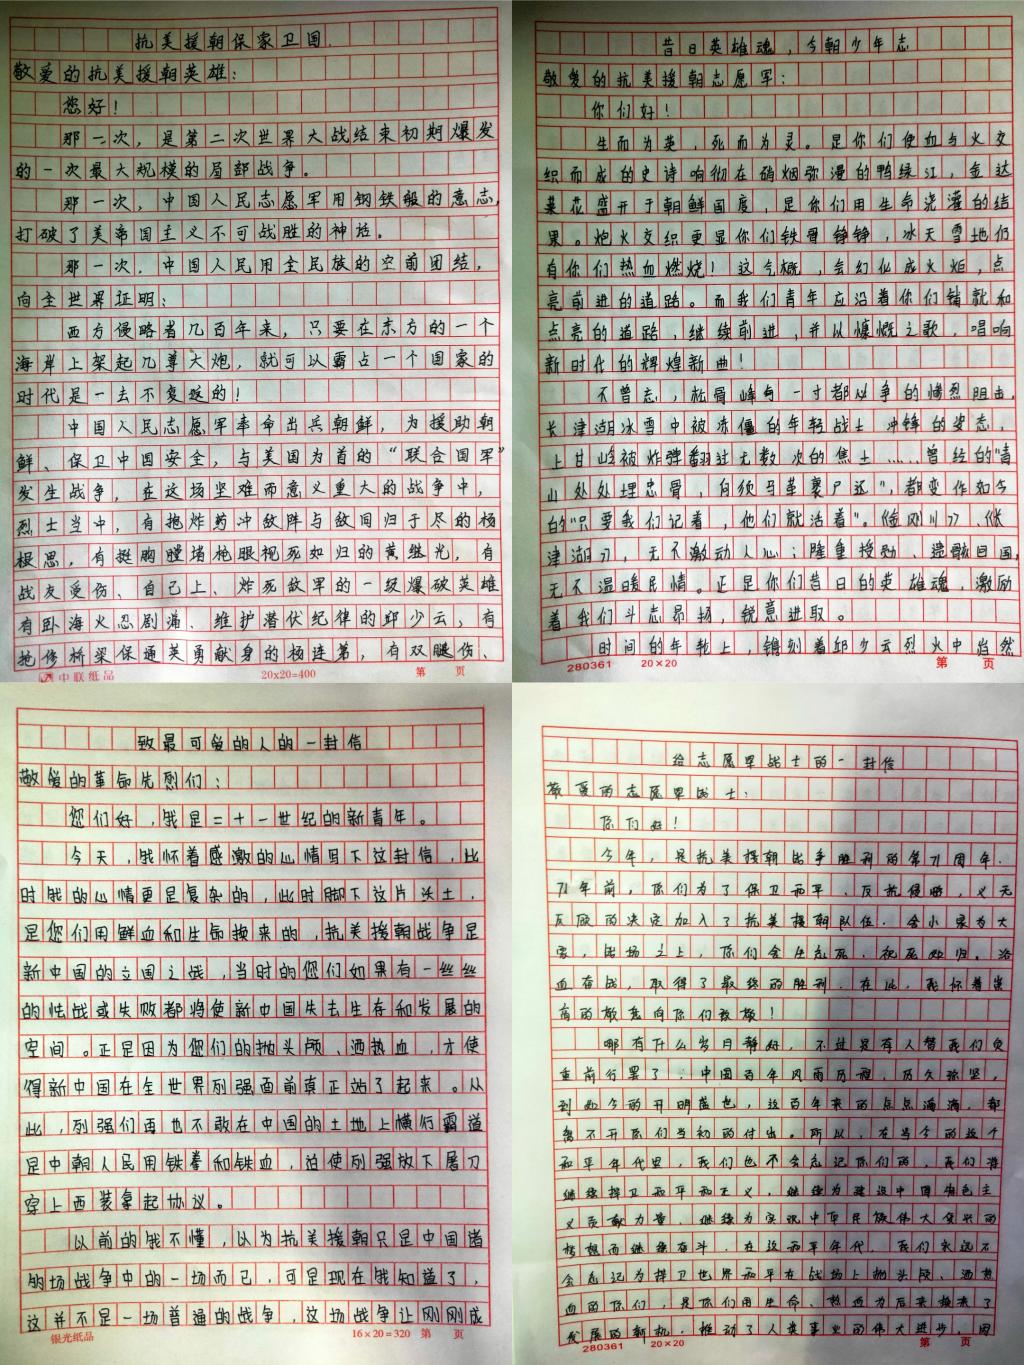 抗美援朝保家卫国.
敬爱的抗美援朝英雄：
您好！
那一次，是第二次世界大战结束初期爆发
的一次最大规模的局部战争。
那一次，中国人民志愿军用钢铁般的意志，
打破了美帝国主义不可战胜的神话。
那一次，中国人民用全民族的空前团结，
向全世界证明：
西方侵略者几百年来，只要在东方的一个
海岸上架起几尊大炮，就可以霸占一个国家的
时代是一去不复返的！
中国人民志愿军奉命出兵朝鲜，为援助朝
鲜、保卫中国安全，与美国为首的“联合国军”
发生战争，在这场坚难而意义重大的战争中，
烈士当中，有抱炸药冲敌阵与敌同归于尽的杨
根思，有挺胸膛堵枪眼视死如归的黄继光，有
战友受伤、自己上、炸死敌军的一级爆破英雄
有卧海火忍剧痛、维护潜伏纪律的邱少云，有
抢修桥梁保通英勇献身的杨连第，有双腿伤、
中联纸品 20x20=400 第 页
昔日英雄魂，今朝少年志
敬爱的抗美援朝志愿军：
你们好！
生而为英，死而为灵。是你们使血与火交
织而成的史诗响彻在硝烟弥漫的鸭绿江，金达
莱花盛开于朝鲜国度，是你们用生命浇灌的结
果。炮火交织更显你们铁骨铮铮，冰天雪地仍
有你们热血燃烧！这气概，会幻化成火炬，点
亮前进的道路。而我们青年应沿着你们铺就和
点亮的道路，继续前进，并以慷慨之歌，唱响
新时代的辉煌新曲！
不曾忘，松骨峰每一寸都必争的惨烈阻击，
长津湖冰雪中被冻僵的年轻战士冲锋的姿态，
上甘岭被炸弹翻过无数次的焦土……曾经的“青
山处处埋忠骨，何须马革裹尸还”，都变作如今
的“只要我们记着，他们就活着”。《金刚川》、《长
津湖》，无不激动人心；隆重授勋、遗骸回国，
无不温暖民情。正是你们昔日的英雄魂，激励
着我们斗志昂扬，锐意进取。
时间的年轮上，镌刻着邱少云烈火中岿然
280361 20×20 第 页
致最可爱的人的一封信
敬爱的革命先烈们：
您们好，我是二十一世纪的新青年。
今天，我怀着感激的心情写下这封信，此
时我的心情更是复杂的，此时脚下这片沃土，
是您们用鲜血和生命换来的，抗美援朝战争是
新中国的立国之战，当时的您们如果有一丝丝
的怯战或失败都将使新中国失去生存和发展的
空间。正是因为您们的抛头颅、洒热血，才使
得新中国在全世界列强面前真正站了起来。从
此，列强们再也不敢在中国的土地上横行霸道
是中朝人民用铁拳和铁血，迫使列强放下屠刀
穿上西装拿起协议。
以前的我不懂，以为抗美援朝只是中国诸
多的场战争中的一场而已，可是现在我知道了，
这并不是一场普通的战争，这场战争让刚刚成
银光纸品 16×20=320 第 页
给志愿军战士的一封信
敬爱的志愿军战士：
你们好！
今年，是抗美援朝战争胜利的第71周年.
71年前，你们为了保卫和平、反抗侵略，义无
反顾的决定加入了抗美援朝队伍.舍小家为大
家，战场之上，你们舍生忘死、视死如归。浴
血奋战，取得了最终的胜利.在此，我怀着崇
高的敬意向你们致敬！
哪有什么岁月静好，不过是有人替我们负
重前行罢了.中国百年风雨历程，历久弥坚，
到如今的开明盛世，这百年来的点点滴滴，都
离不开你们当初的付出。所以，在当今的这个
和平年代里，我们也不会忘记你们的，我们将
继续捍卫和平和正义，继续为建设中国特色主
义贡献力量，继续为实现中华民族伟大复兴的
梦想而继续奋斗.在这和平年代，我们永远不
会忘记为捍卫世界和平在战场上抛头颅、洒热
血的你们，是你们用生命、热血为后来换来了
发展的新机，推动了人类事业的伟大进步，因
280361 20×20 第 页